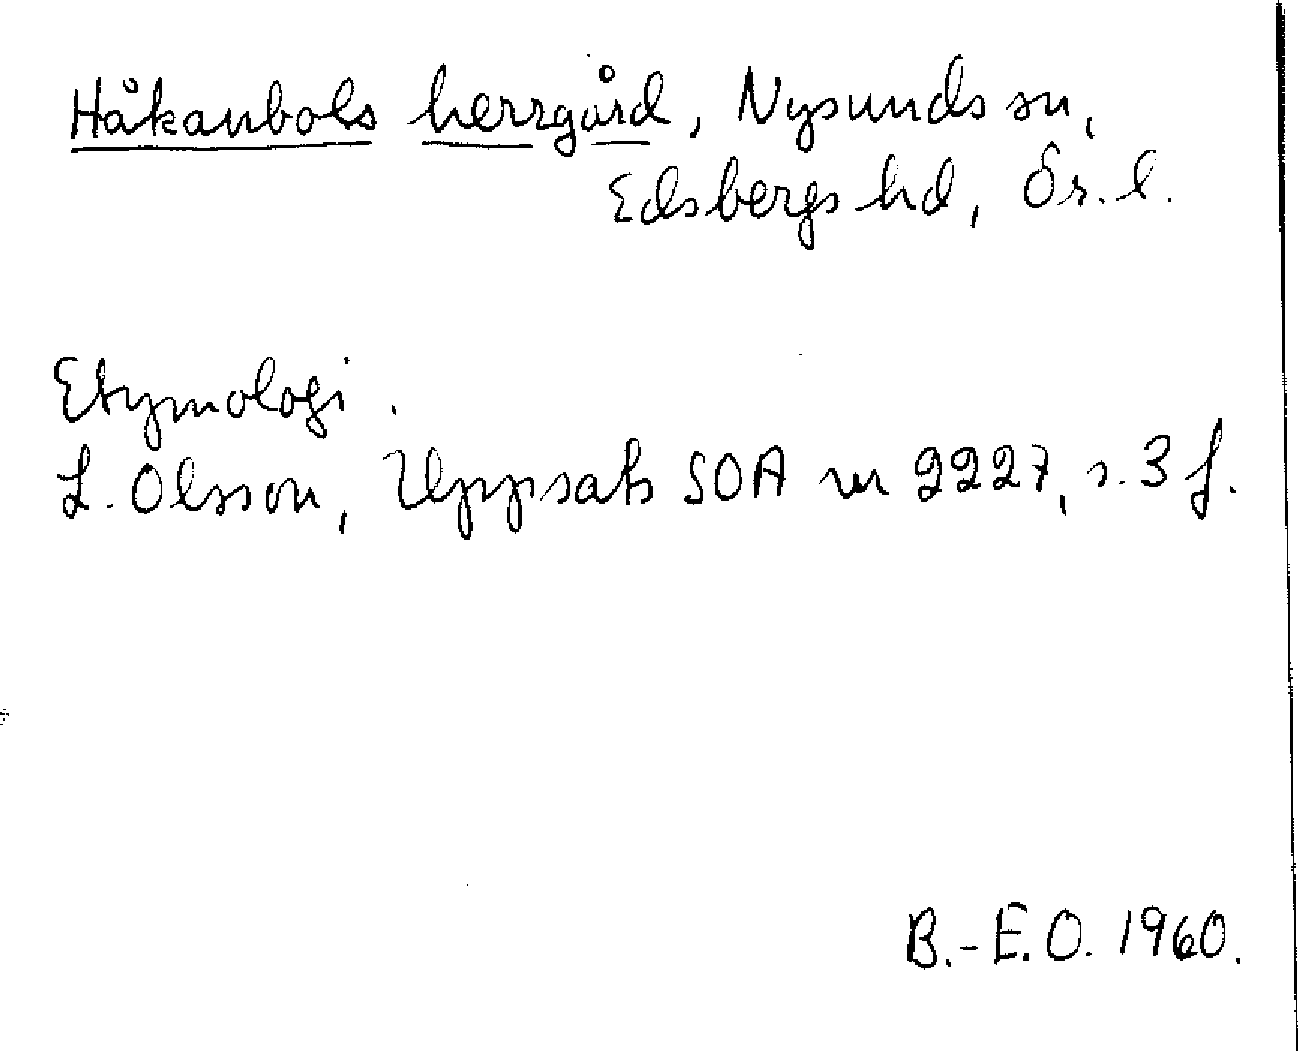 Håkanbols herrgård, Nysunds sn,
Edsbergs hd, Ör. l.
Etymologi.
L. Olsson, Uppsats SOA nr 2227, s. 3 f.
B.-E.O. 1960.